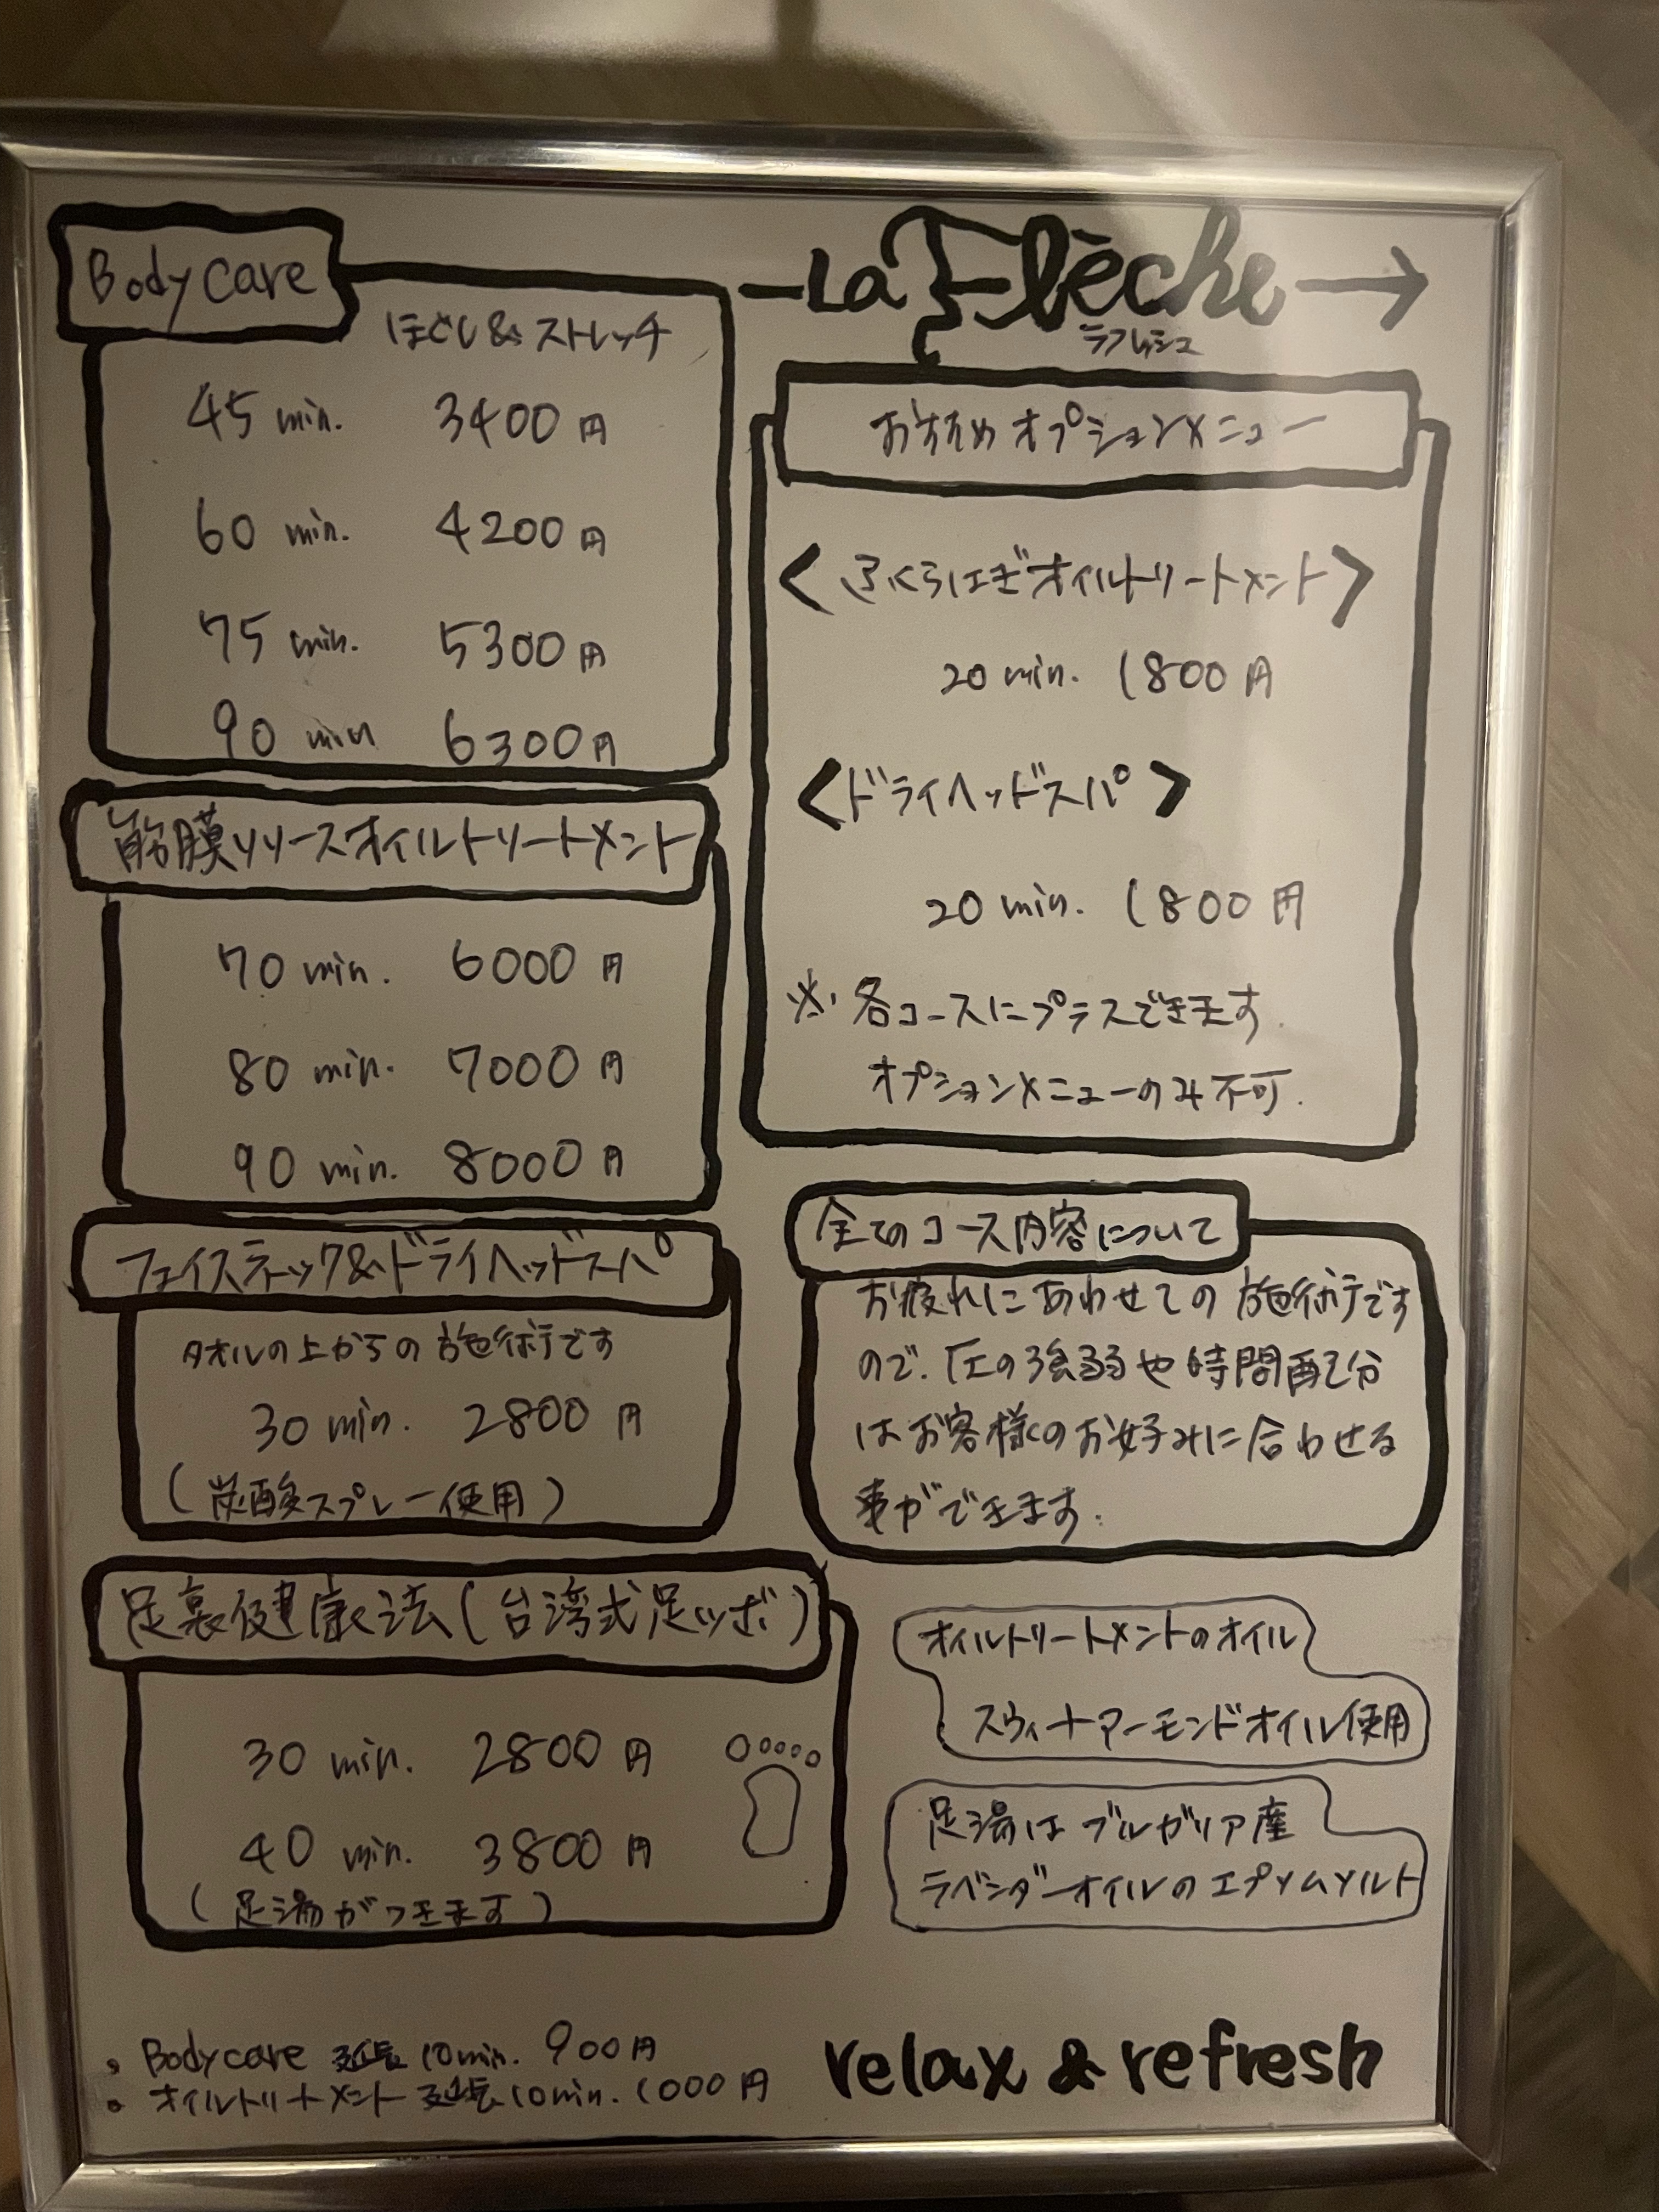 Body Care
ほぐし&ストレッチ
45 min. 3400円
60 min. 4200円
75 min. 5300円
90 min 6300円
筋膜リリースオイルトリートメント
70 min. 6000円
80 min. 7000円
90 min. 8000円
フェイスネック&ドライヘッドスパ
タオルの上からの施術です
30 min. 2800円
(炭酸スプレー使用)
足裏健康法(台湾式足ツボ)
30 min. 2800円
40 min. 3800円
(足湯がつきます)
• Bodycare 延長 10min. 900円
• オイルトリートメント 延長 10min. 1000円
La Flèche →
ラフレッシュ
おすすめオプションメニュー
<ふくらはぎオイルトリートメント>
20 min. 1800円
<ドライヘッドスパ>
20 min. 1800円
※各コースにプラスできます.
オプションメニューのみ不可.
全てのコース内容について
お疲れにあわせての施術です
ので.圧の強弱や時間配分
はお客様のお好みに合わせる
事ができます.
オイルトリートメントのオイル
スウィートアーモンドオイル使用
足湯はブルガリア産
ラベンダーオイルのエプソムソルト
relax & refresh